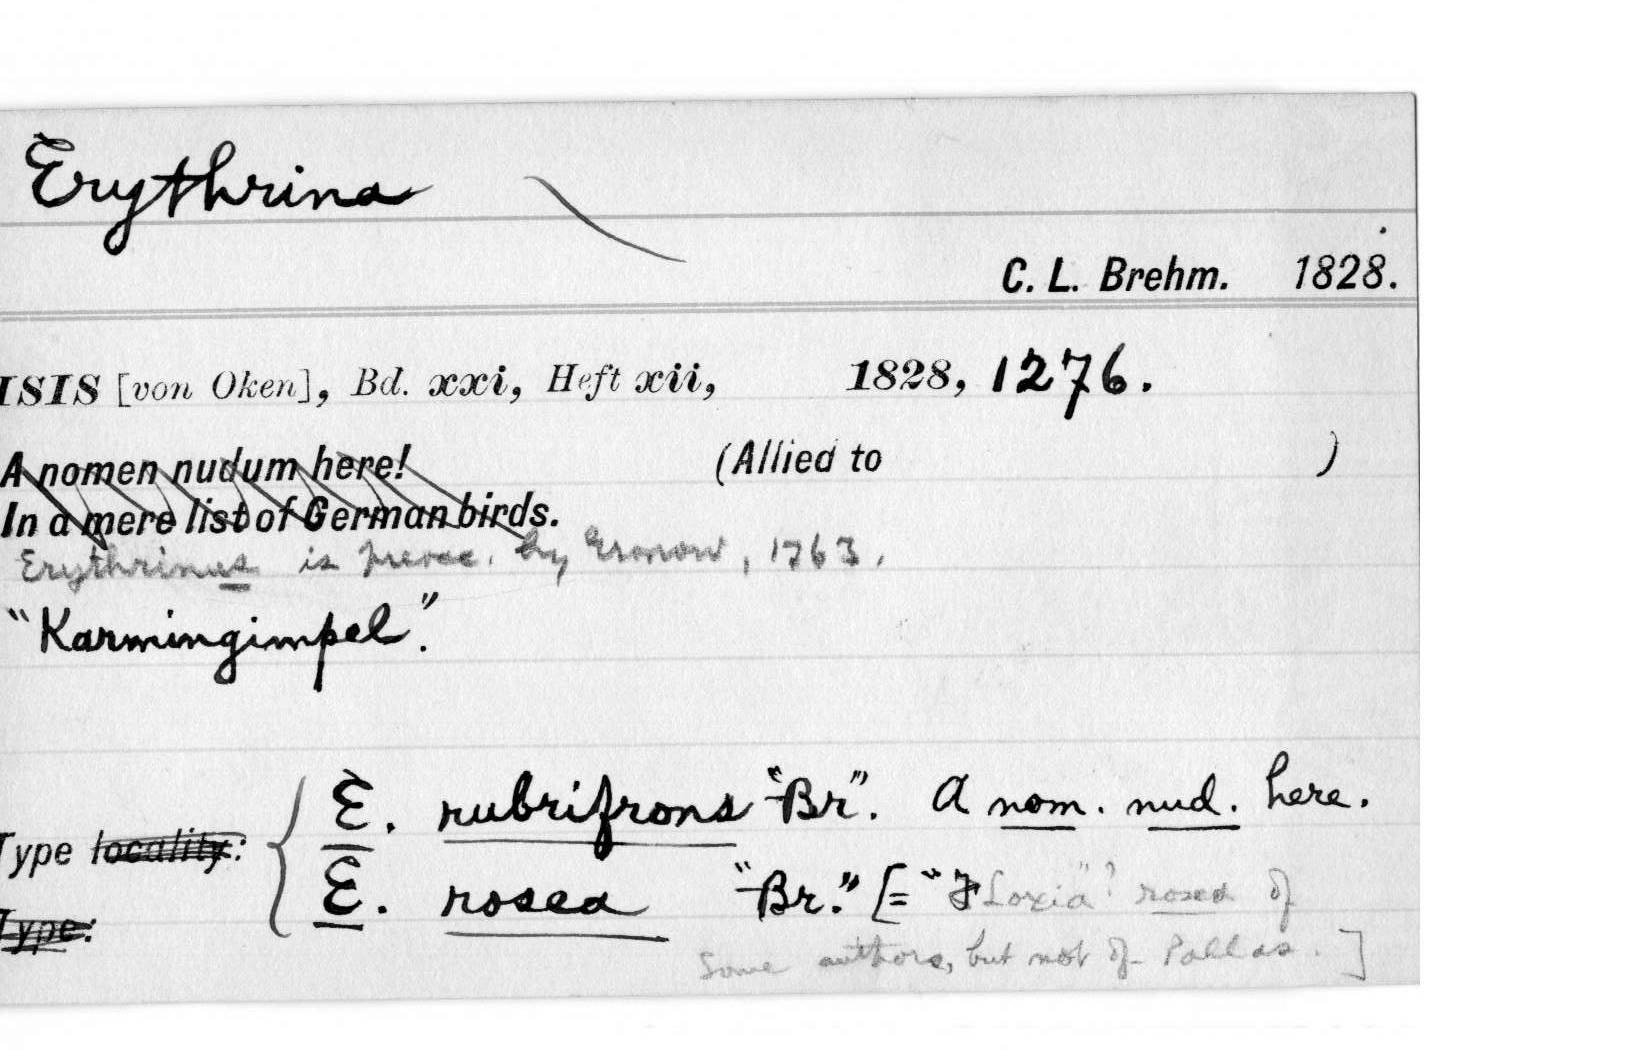 Erythrina
C. L. Brehm. 1828.
ISIS [von Oken], Bd. xxi, Heft xii, 1828, 1276.
A nomen nudum here! (Allied to )
In a mere list of German birds.
Erythrinus is preoc. by Gronow, 1763.
"Karmingimpel".
E. rubrifrons "Br". A nom. nud. here.
Type locality:
E. rosea "Br." [= "Loxia"? rosea of
Type:
Some authors, but not of Pallas.]